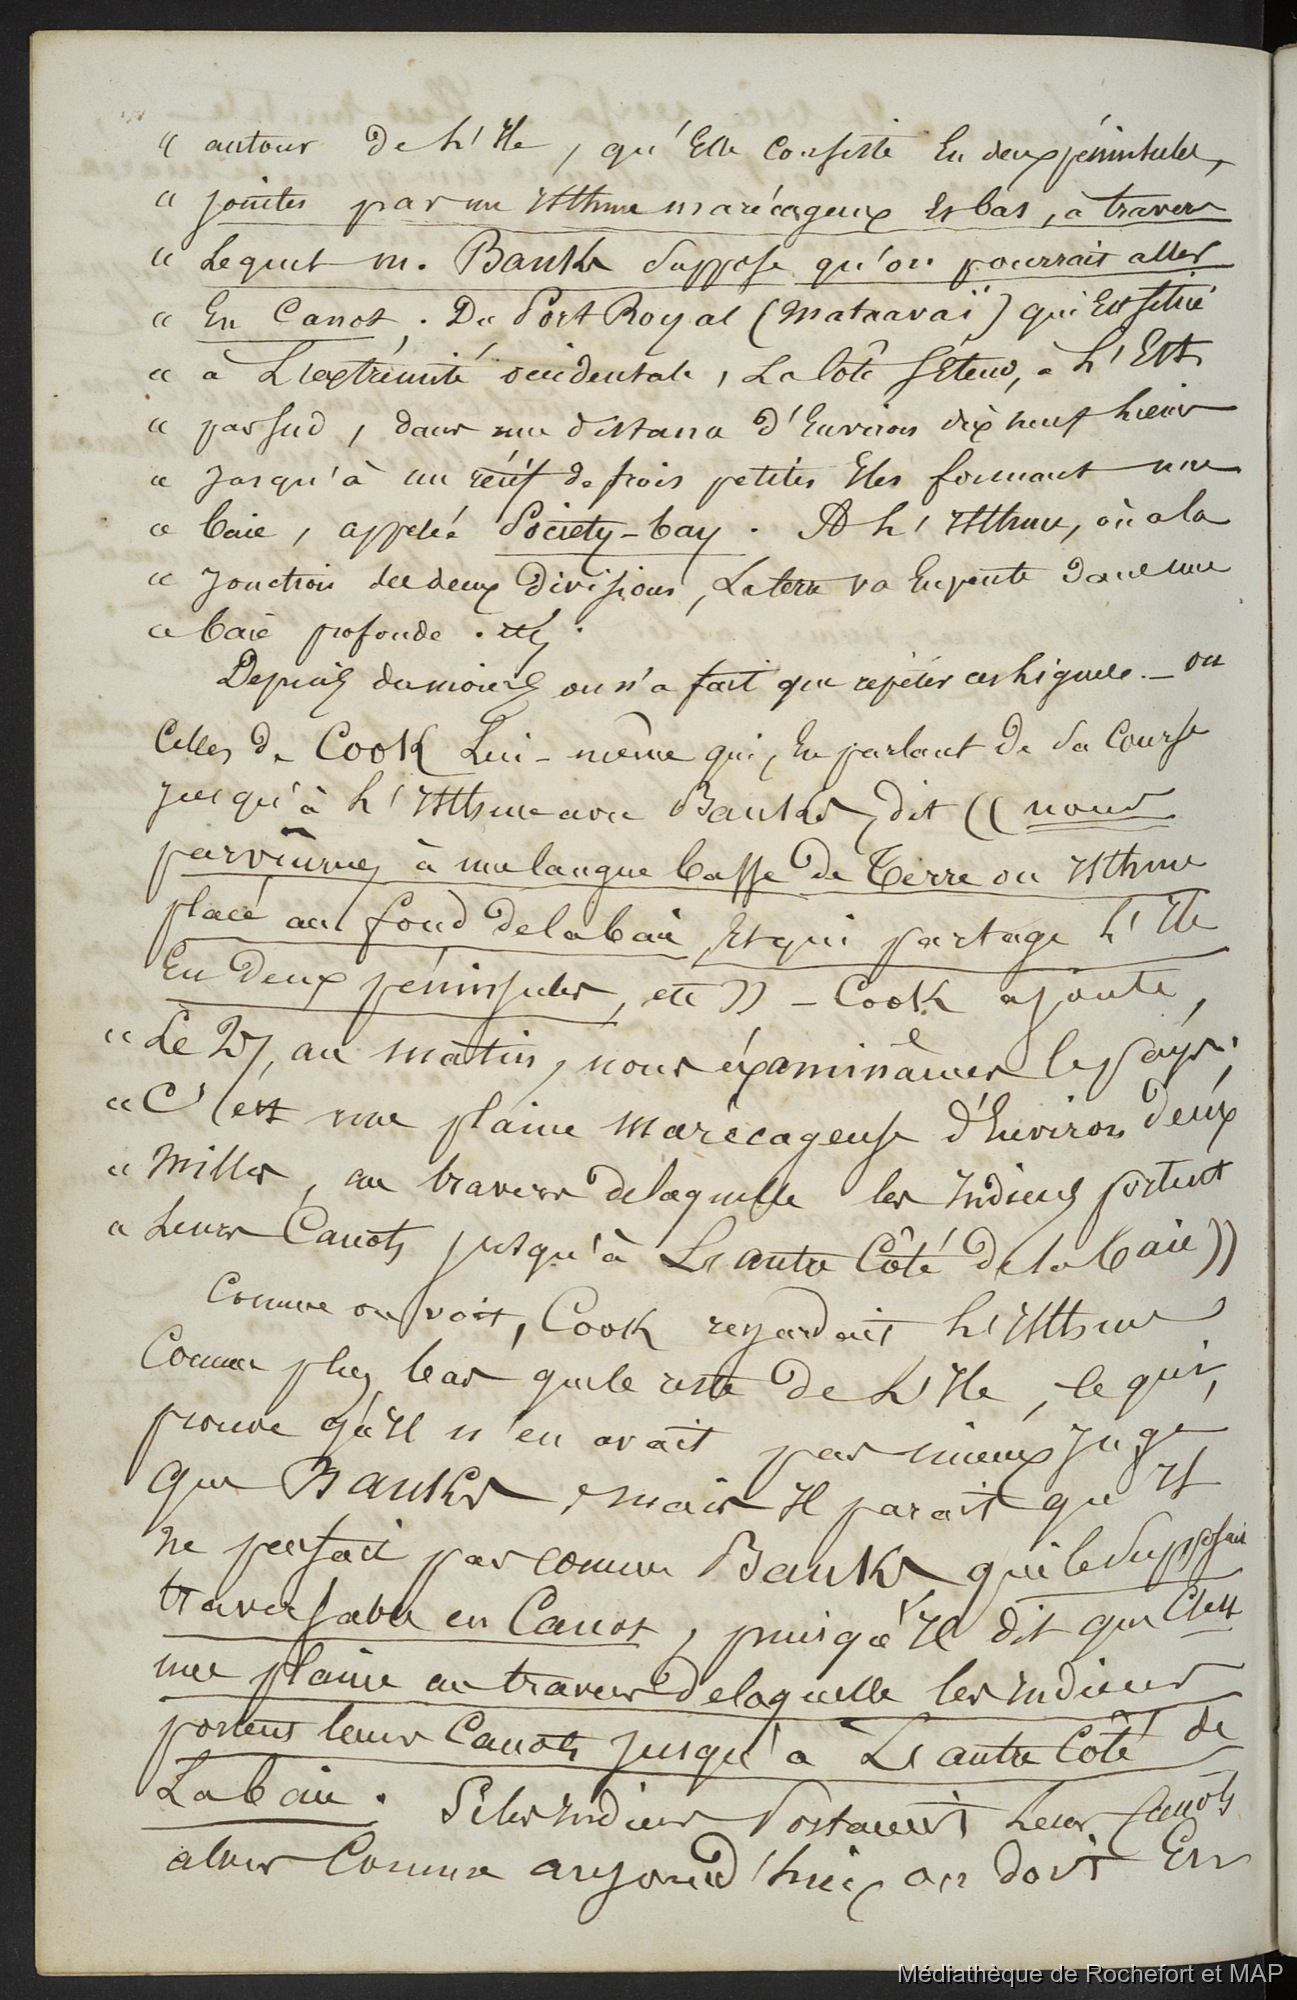 « autour de L'Ile, qu'Elle Consiste En deux péninsules,
« jointes par un Isthme marécageux et bas, à travers
« Lequel m. Banks Suppose qu'on pourrait aller
« En Canot. Du Port Royal (Mataavaï) qui Est Situé
« à L'extrémité occidentale, La Côte S'étend, à L'Est
« par Sud, dans une distance d'Environ dix neuf Lieues
« Jusqu'à un récif de trois petites Iles formant une
« baie, appelée Society-bay. A L'Isthme, où a la
« Jonction des deux Divisions, La terre va En pente dans une
« baie profonde. etc.
Depuis du moins on n'a fait que répéter ces Lignes. — ou
Celles de Cook Lui-même qui, En parlant de Sa Course
Jusqu'à L'Isthme avec Banks, dit (( nous
parvînmes à une langue basse de Terre ou Isthme
placé au fond de la baie Et qui partage L'Ile
En Deux péninsules, etc )) – Cook ajoute,
« Le , au matin, nous éxaminâmes le Pays;
« C'est une plaine marécageuse d'Environ deux
« Milles, au travers de laquelle les Indiens portent
« Leurs Canots jusqu'à L'autre Côté de la baie ))
Comme on voit, Cook regardait L'Isthme
Comme plus bas que le reste de L'Ile, ce qui,
prouve qu'Il n'en avait pas mieux Jugé
que Banks, mais Il parait qu'Il
ne pensait pas comme Banks, qui le Supposait
traversable en Canot, puisqu'Il dit que C'est
une plaine au travers de laquelle les Indiens
portent leurs Canots jusqu'à L'autre Côté de
La baie. Si les Indiens Portaient Leurs Canots
alors Comme aujourd'hui, on doit En